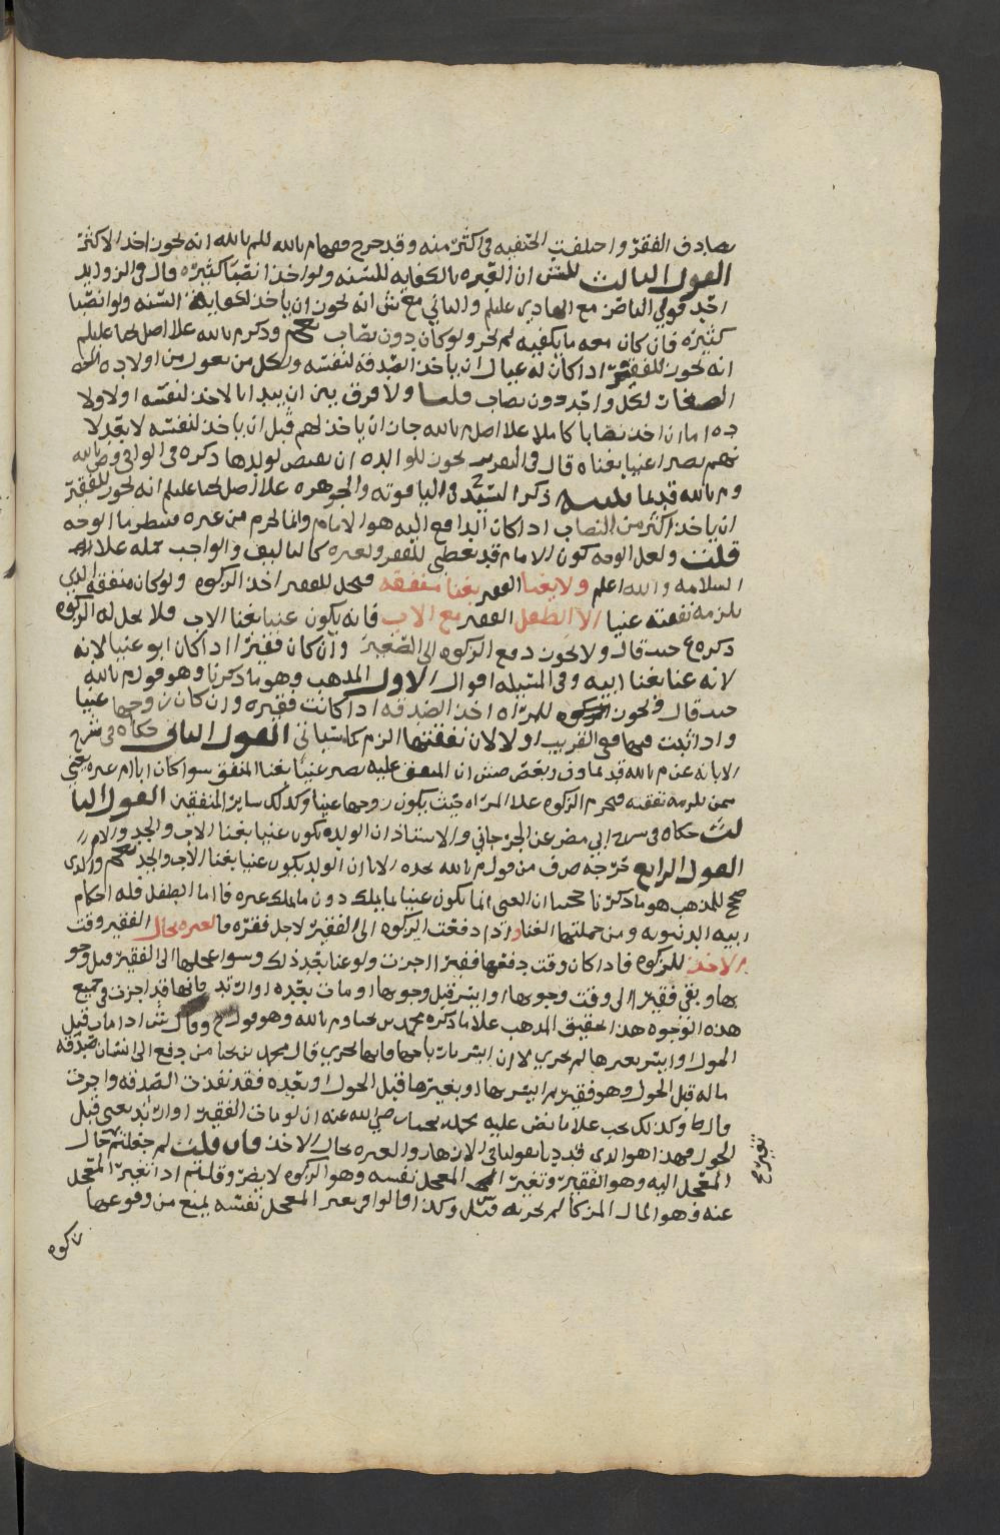 يصادف الفقر واختلفت الحنفيه في اكثر منه وقد خرج م بالله انه يجوز اخذ الاكثر
القول الثالث ان العبره بالكفايه للسنه ولو اخذ انصبا كثيره قال في الزوايد
احد قولي الناصر مع الهادي عليلم والثاني مع ش انه يجوز ان ياخذ لكفاية السنه ولو انصبا
كثيرة فان كان معه ما يكفيه لم يجز ولو كان دون نصاب وذكر م بالله علا اصل يحيا عليلم
انه يجوز للفقير اذا كان له عيال ان ياخذ الصدقه لنفسه ولكل من يعول من اولاده
الصغار لكل واحد دون نصاب قلنا ولا فرق بين ان يبدا بالاخذ لنفسه او لاولا
ده اما ان اخذ نصابا كاملا علا اصل م بالله جاز ان ياخذ لهم قبل ان ياخذ لنفسه لا بعد لا
نهم يصيروا اغنيا بغناه قال في يجوز للوالده ان تقبض لولدها ذكره في الوافي وض بالله
و م بالله قديما ذكر السيد في الياقوته والجوهره علا اصل يحيا عليلم انه يجوز للفقير
ان ياخذ اكثر من النصاب اذا كان الدافع اليه هو الامام وانما يحرم من غيره فينظر ما الوجه
قلت ولعل الوجه كون الامام قد يعطي للفقر ولغيره كالتاليف والواجب حمله علا
السلامه والله اعلم ولا يغنا الفقير بغنا منفقه فيحل للفقير اخذ الزكوه ولو كان منفقه الذي
يلزمه نفقته غنيا الا الطفل الفقير مع الاب فانه يكون غنيا بغنا الاب فلا يحل له الزكوه
ذكره ع حيث قال ولا يجوز دفع الزكوه الى الصغير وان كان فقيرا اذا كان ابوه غنيا لانه
لانه غنا بغنا ابيه وفي المسئله اقوال الاول للمذهب وهو ما ذكرنا وهو قول م بالله
حيث قال ويجوز للمراه اخذ الصدقه اذا كانت فقيره وان كان زوجها غنيا
واذا ثبت فيها ففي القريب اولا لان نفقتها الزم كما سياتي القول الثاني حكاه في شرح
الابانه عن م بالله قديما و ف وبعض صش ان المنفق عليه يصير غنيا بغنا المنفق سوا كان ابا ام غيره يعني
ممن يلزمه نفقته فيحرم الزكوه علا المراه حيث يكون زوجها غنيا وكذلك ساير المنفقين القول الثا
لث حكاه في شرح ابي مضر عن الجرجاني والاستاذ ان الولد يكون غنيا بغنا الاب والجد والام
القول الرابع خرجه ص ف من قول م بالله يحده ان الولد يكون غنيا بغنا الاب والجد والذي
صحح للمذهب هو ما ذكرنا ان الغني انما يكون غنيا بما يملك دون ما يملك غيره فاما الطفل فله احكام
ابيه الدنيويه ومن جملتها الغنا واذا دفعت الزكوه الى الفقير لاجل فقره فالعبره بحال الفقير وقت
الاخذ للزكوه فاذا كان وقت دفعها فقيرا اجزت ولو غنا بعد ذلك وسوا عجلها الى الفقير قبل وجو
بها وبقي فقيرا الى وقت وجوبها او ايسر قبل وجوبها او مات بعده او ارتد فانها قد اجزت في جميع
هذه الوجوه هذا تحقيق المذهب علا ما ذكره محمد بن يحيا و م بالله وهو قول ح وقال ش اذا مات قبل
الحول او ايسر بغيرها لم تجزي الا ان ايسر بارباحها فانها تجزي قال محمد بن يحيا من دفع الى انسان صدقة
ماله قبل الحول وهو فقير ثم ايسر بها او بغيرها قبل الحول او بعده فقد نفذت الصدقه واجزت
قال ط وكذلك يجب علا ما نص عليه محمد بن يحيا رضي الله عنه ان لو مات الفقير او ارتد يعني قبل
الحول فهذا هو الذي قصد بالعوليا في الازهار والعبره بحال الاخذ فان قلت لم جعلتم حال
المعجل اليه وهو الفقير وتغير المعجل نفسه وهو الزكوه لا يضر وقلتم اذا تغير المعجل
عنه فهو المال المزكا لم يجز قيل وكذا قالوا تغير المعجل نفسه يمنع من وقوعها
تغير ح
زكوه